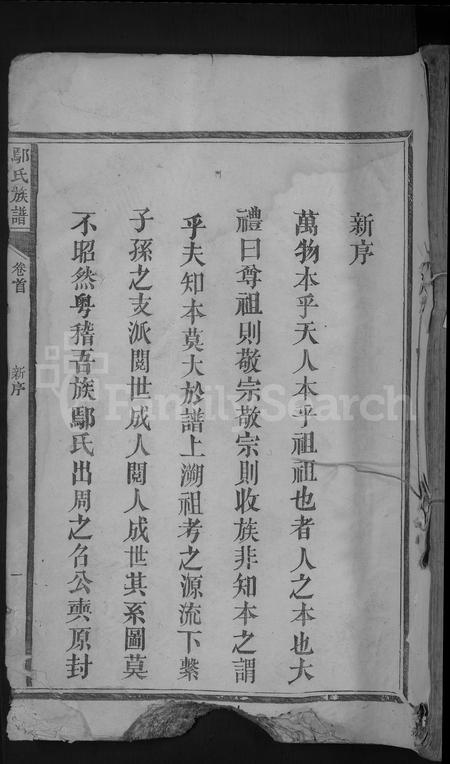 新序
萬物本乎天人本乎祖祖也者人之本也大
禮曰尊祖則敬宗敬宗則收族非知本之謂
乎夫知本莫大於譜上溯祖考之源流下繫
子孫之支派閱世成人閱人成世其系圖莫
不昭然粵稽吾族鄢氏出周之名公奭原封
鄢氏族譜
卷首
新序
一
FamilySearch